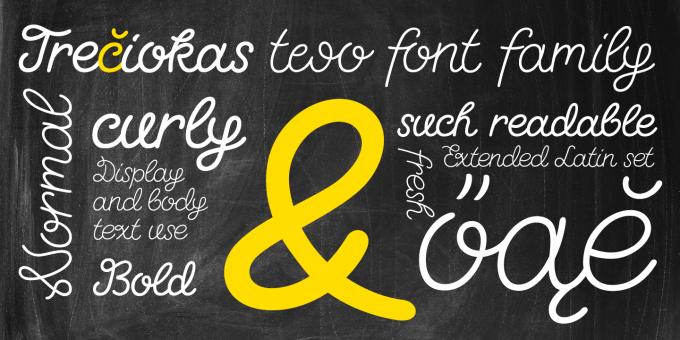 Trečiokas two font family
Normal
curly
Display
and body
text use
Bold
&
such readable
Extended Latin set
fresh
őąě